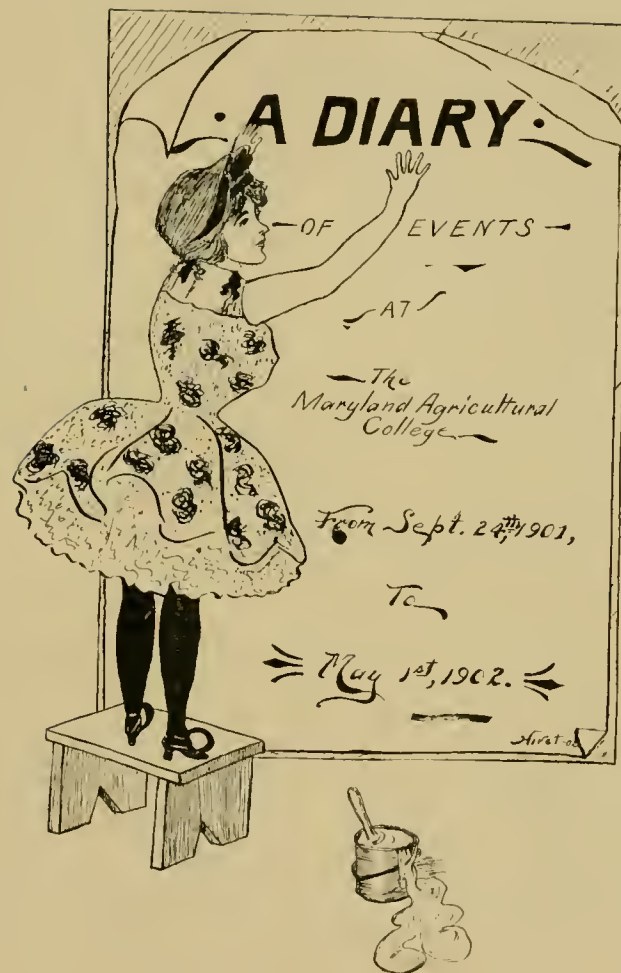 · A DIARY ·
OF EVENTS
AT
The
Maryland Agricultural
College
From Sept. 24th, 1901,
To
May 1st, 1902.